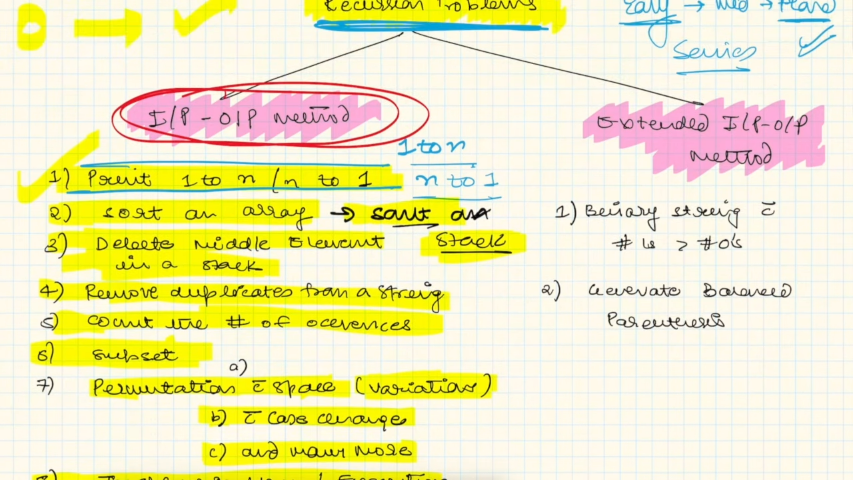 Recursion Problems
Easy → Med → Hard
Series
I/P - O/P method
Extended I/P-O/P
method
1 to n
n to 1
1) Print 1 to n / n to 1
2) sort an array → sort an
3) Delete Middle Element stack
in a stack
4) Remove duplicates from a string
5) count the # of occurences
6) subset
7) Permutation c̄ space (variation)
a)
b) c̄ case change
c) and many more
8)
1) Binary string c̄
# 1s > # 0s
2) Generate Balanced
Parenthesis